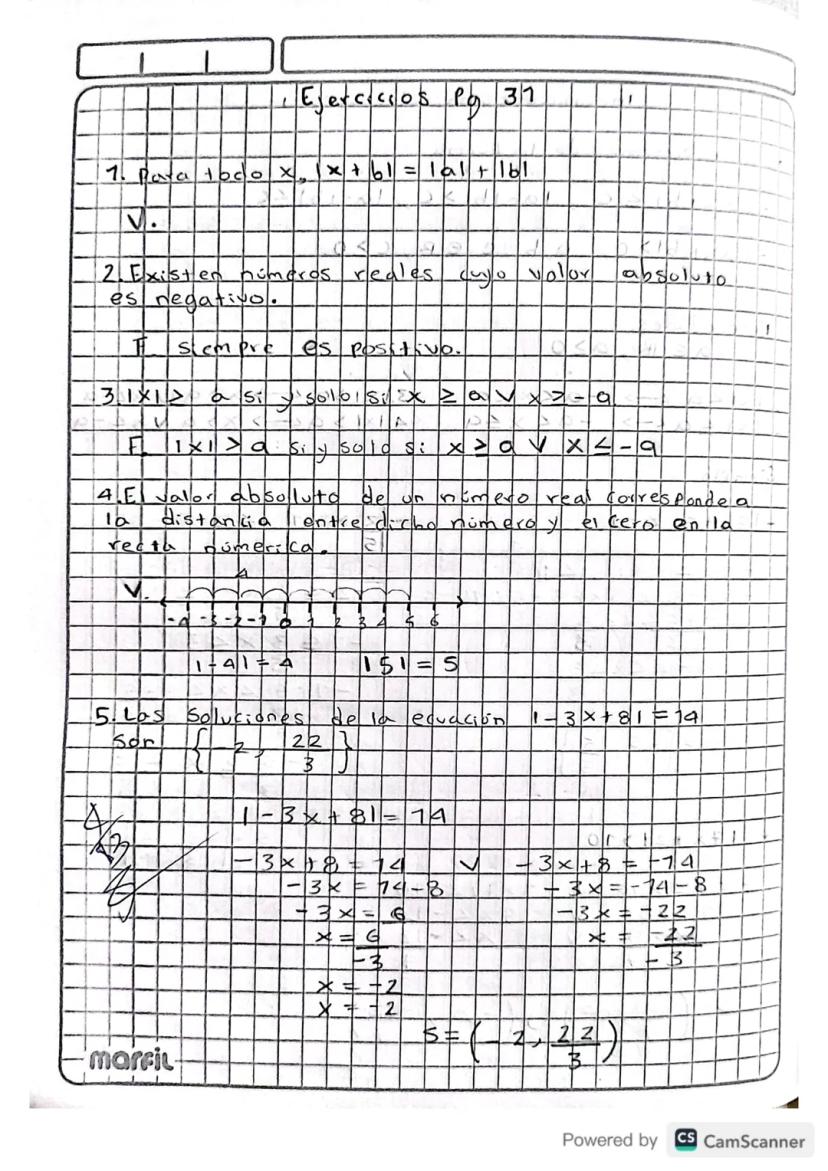 Ejercicios Pg 31
1. Para todo x, |x + b| = |a| + |b|
V.
2. Existen números reales cuyo valor absoluto
es negativo.
F siempre es positivo.
3. |x| ≥ a si y solo si x ≥ a ∨ x ≥ - a
F. |x| > a si y solo si x ≥ a ∨ x ≤ - a
4. El valor absoluto de un número real corresponde a
la distancia entre dicho número y el cero en la
recta númerica.
4
V.
-4 -3 -2 -1 0 1 2 3 4 5 6
|-4| = 4 |5| = 5
5. Las soluciones de la ecuación |-3x+8| = 14
son {-2, 22/3}
|-3x+8| = 14
-3x+8 = 14 ∨ -3x+8 = -14
-3x = 14-8 -3x = -14-8
-3x = 6 -3x = -22
x = 6/-3 x = -22/-3
x = -2
x = -2
S = (-2, 22/3)
marfil
Powered by CS CamScanner